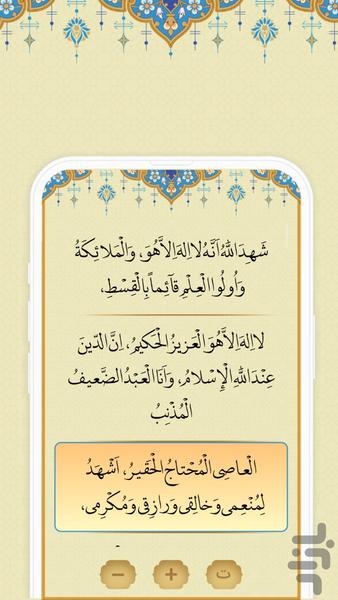 شَهِدَ اللّٰهُ اَنَّهُ لا اِلهَ اِلاَّ هُوَ، وَالْمَلائِكَةُ
وَاُولُوا الْعِلْمِ قآئِماً بِالْقِسْطِ،
لا اِلهَ اِلاَّ هُوَ الْعَزيزُ الْحَكيمُ، اِنَّ الدّينَ
عِنْدَ اللّٰهِ الْاِسْلامُ، وَاَنَا الْعَبْدُ الضَّعيفُ
الْمُذْنِبُ
الْعاصِى الْمُحْتاجُ الْحَقيرُ، اَشْهَدُ
لِمُنْعِمى وَخالِقى وَرازِقى وَمُكْرِمى،
− + ت
بازار